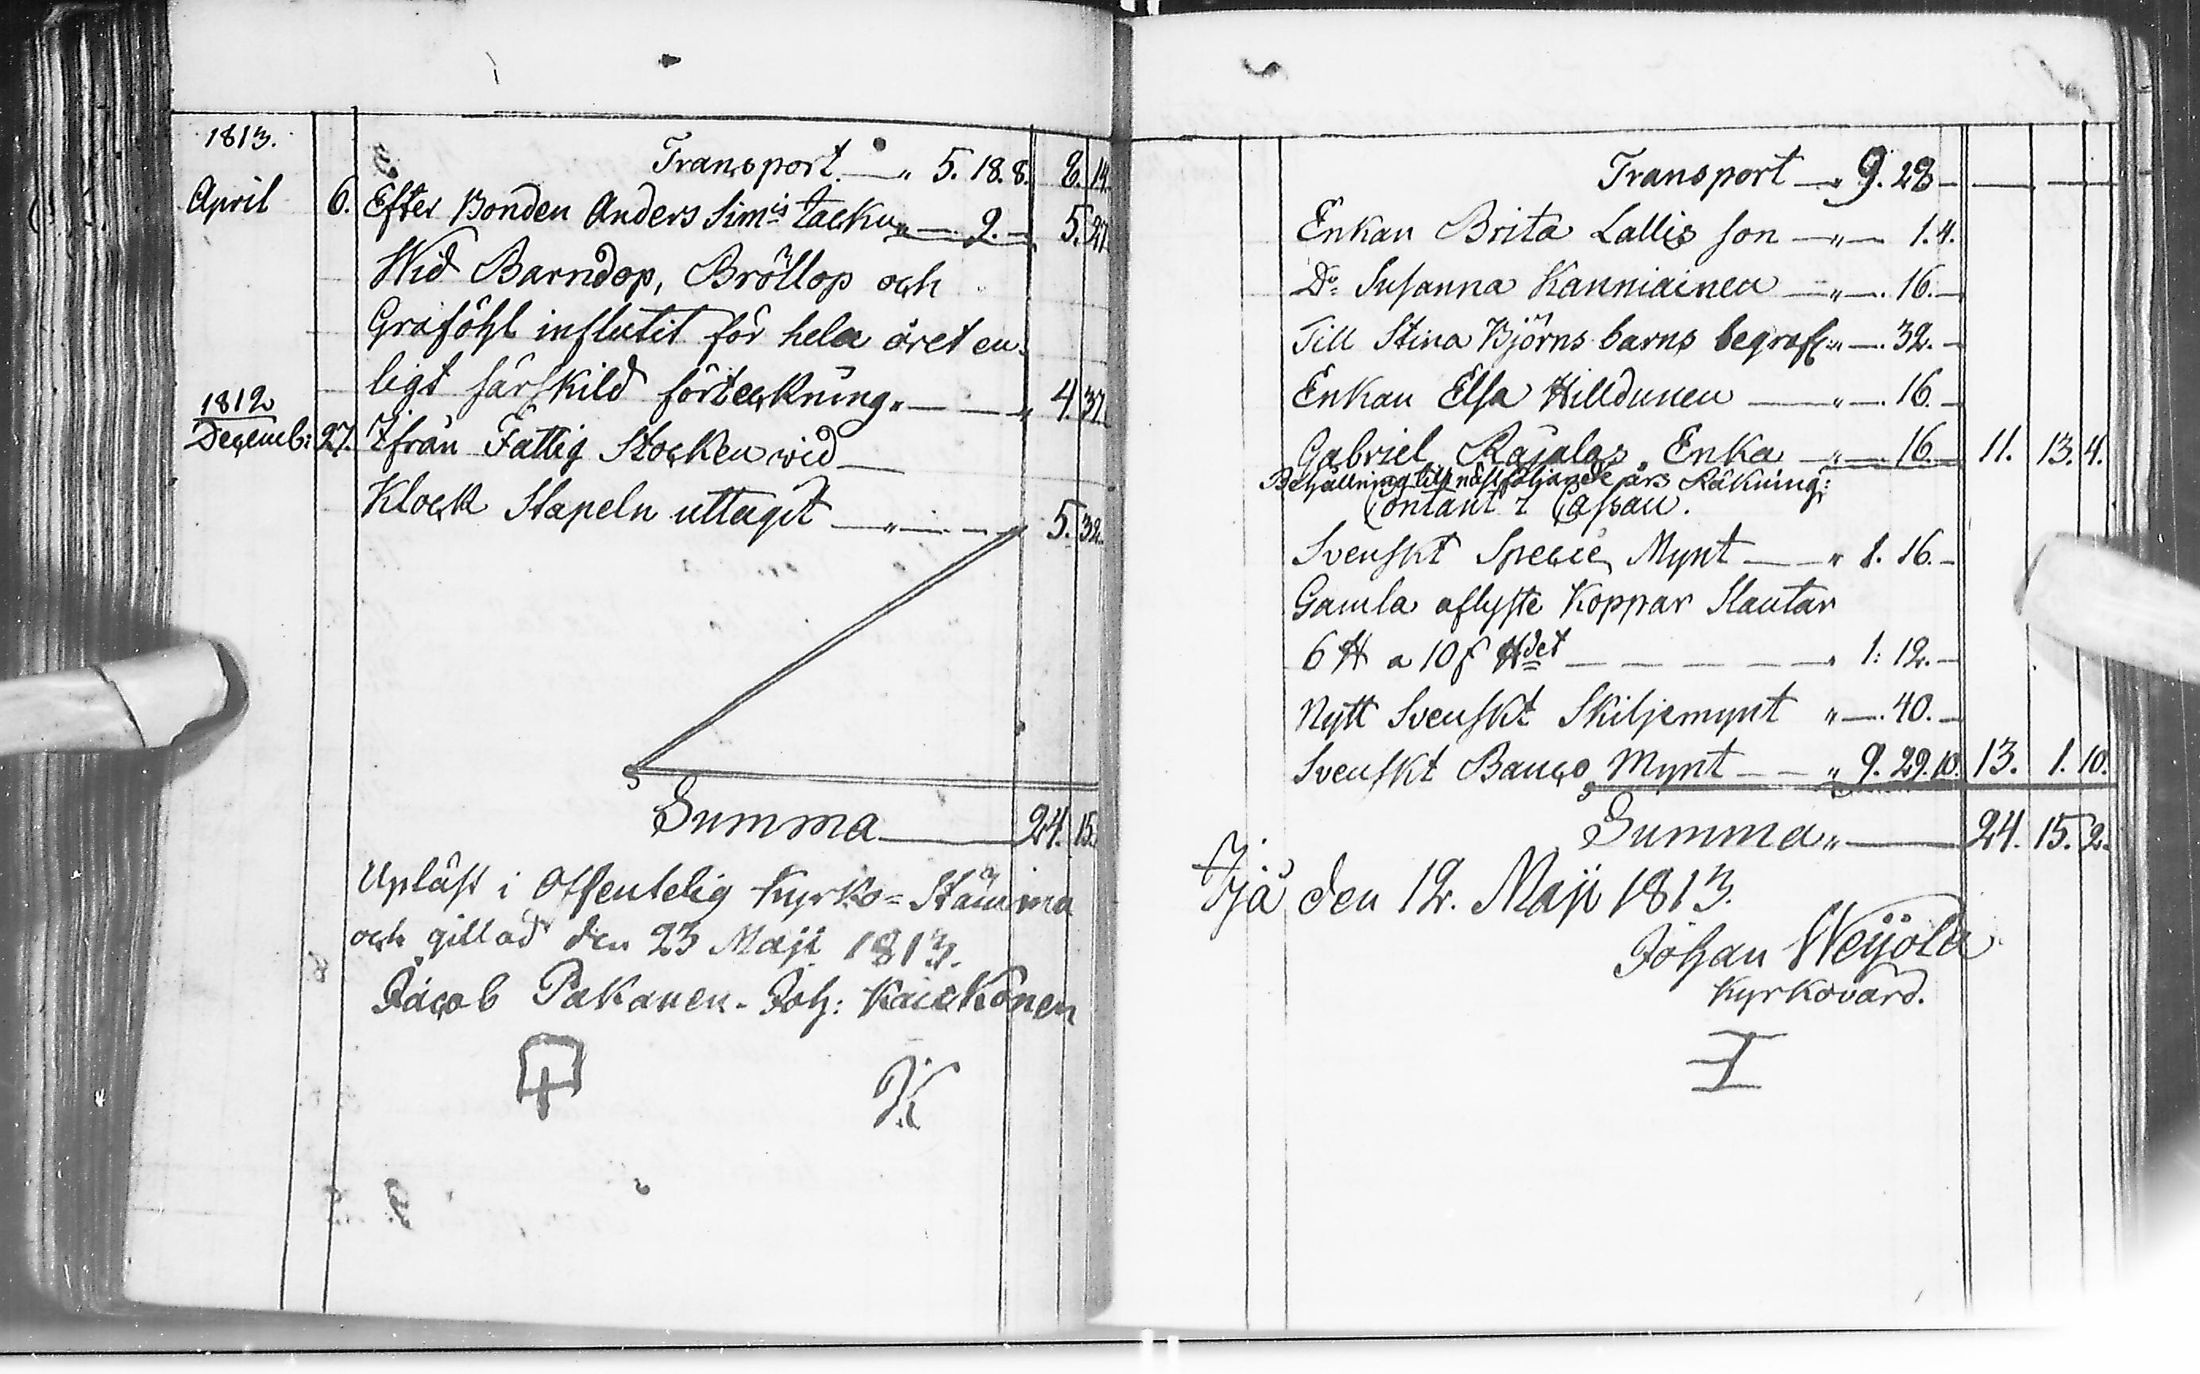 1813.
Transport. — „ 5. 18. 8. 8. 14.
April 6. Efter Bonden Anders Sim:s tacku „ — 9. — 5. 27.
Wid Barndop, Bröllop och
Graföhl influtit för hela året en-
ligt särskild förteckning „ — — „ 4. 37.
1812
Decemb: 27. Ifrån Fattig Stocken wid
Klock Stapeln uttagit — „ — — 5. 32.
Summa — 24. 15.
Upläst i Offentelig Kyrko-Stämma
och gillad den 23 Maji 1813.
Jacob Pakanen. Joh: Kaickonen
K
Transport — „ 9. 28 —
Enkan Brita Lallis son — „ — 1. 4.
D:o Susanna Kanniainen — „ — 16. —
Till Stina Björns barns begrafn „ — 32. —
Enkan Elsa Hilldunen — „ — 16. —
Gabriel Rajalas Enka — „ — 16. — 11. 13. 4.
Behållning till nästföljande års Räkning:
Contant i Cassan.
Svenskt Specie Mynt — — „ 1. 16. —
Gamla aflyste Koppar Slantar
6 ℔ a 10 ſ ℔det — — — — „ 1: 12. —
Nytt Svenskt Skiljemynt „ — 40. —
Svenskt Banco Mynt — — „ 9. 29. 10. 13. 1. 10.
Summa „ — 24. 15. 2.
Ijå den 12. Maji 1813.
Johan Weijola
Kyrkovärd.